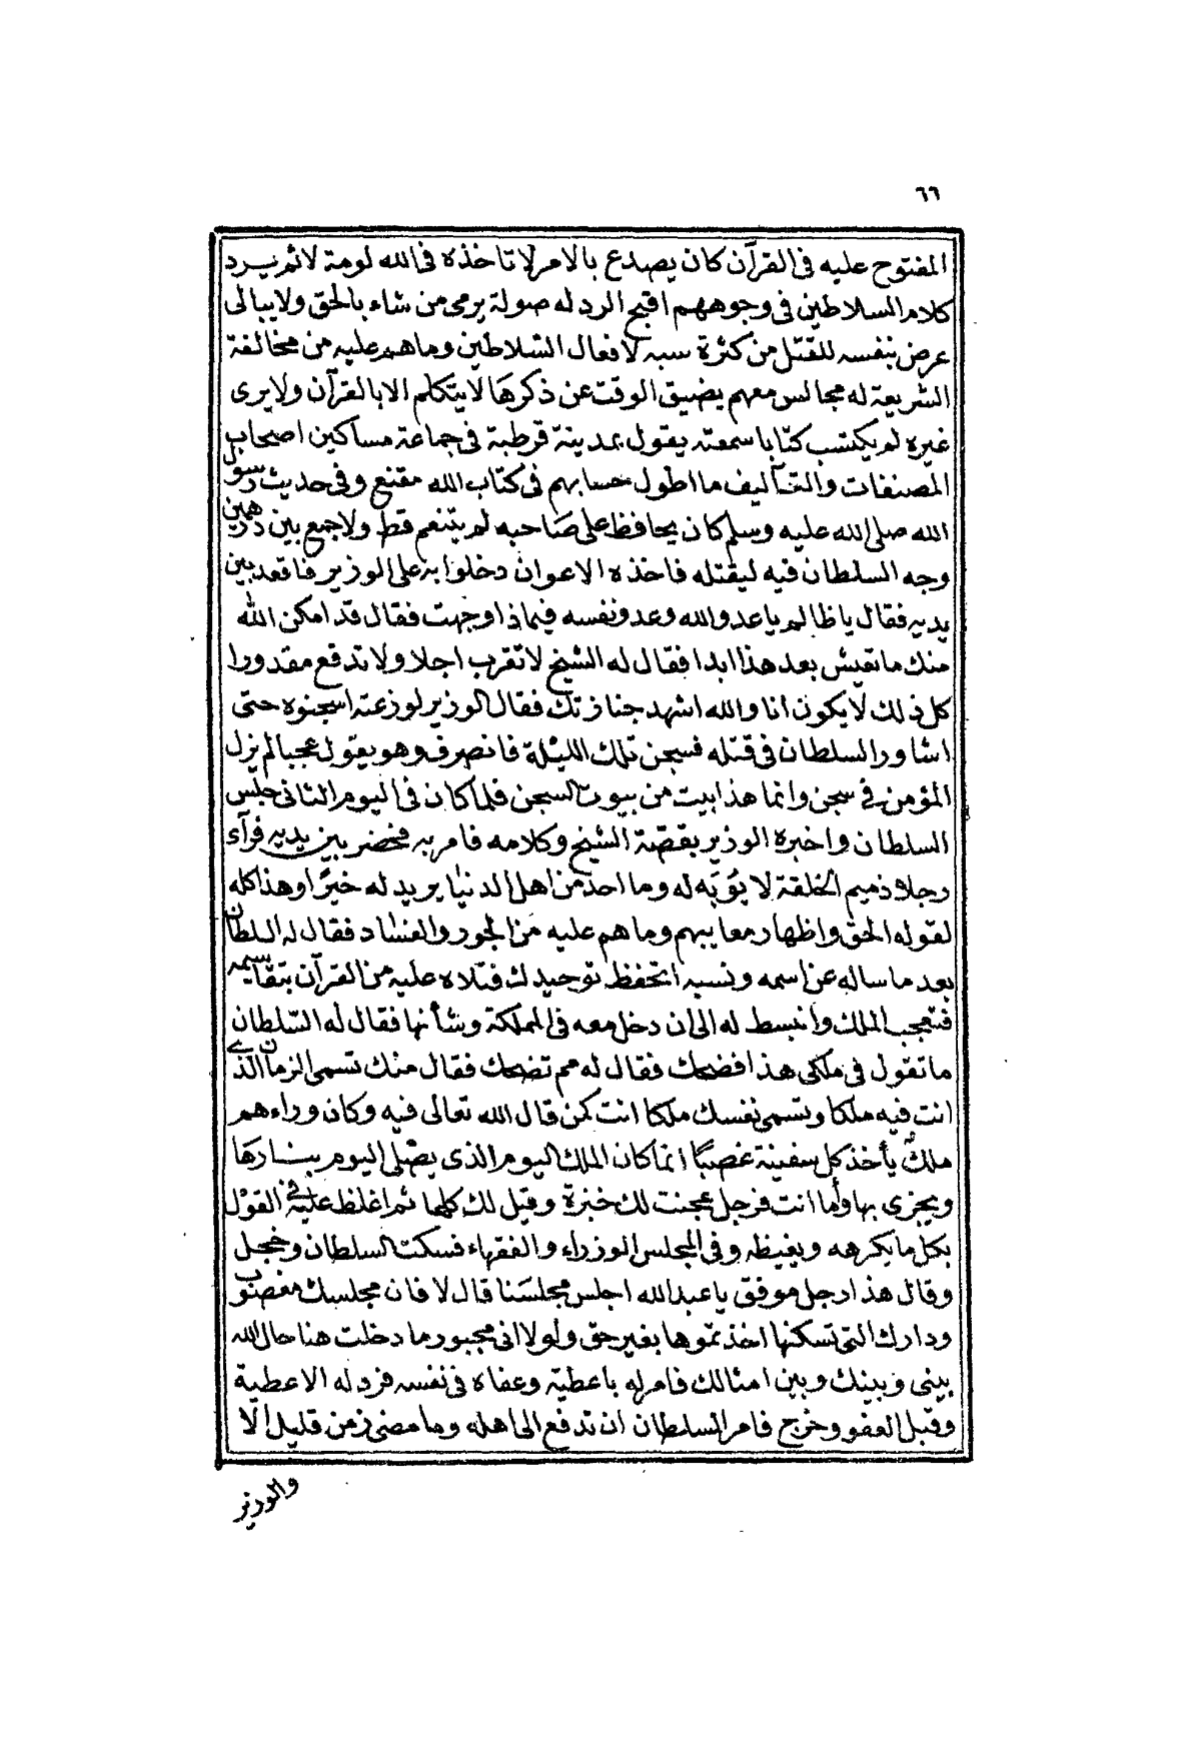 ٦٦
المفتوح عليه فى القرآن كان يصدع بالامر لا تاخذه فى الله لومة لائم يرد
كلام السلاطين فى وجوههم اقبح الرد له صولة يرمى من شاء بالحق ولا يبالى
عرض بنفسه للقتل من كثرة سبه لافعال السلاطين وما هم عليه من مخالفة
الشريعة له مجالس معهم يضيق الوقت عن ذكرها لا يتكلم الا بالقرآن ولا يرى
غيره لم يكتسب كتابا سمعته يقول بمدينة قرطبة فى جماعة مساكين اصحاب
المصنفات والتآليف ما اطول حسابهم فى كتاب الله مقنع وفى حديث رسول
الله صلى الله عليه وسلم كان يحافظ على صاحبه لم يتنعم قط ولا جمع بين درهمين
وجه السلطان فيه ليقتله فاخذه الاعوان دخلوا به على الوزير فاقعد بين
يديه فقال يا ظالم يا عدو الله وعدو نفسه فيماذا وجهت فقال قد امكن الله
منك ما تعيش بعد هذا ابدا فقال له الشيخ لا تقرب اجلا ولا تدفع مقدورا
كل ذلك لا يكون انا والله اشهد جنازتك فقال الوزير لوزعته اسجنوه حتى
اشاور السلطان فى قتله فسجن تلك الليلة فانصرف وهو يقول عجبا لم يزل
المؤمن فى سجن وانما هذا بيت من بيوت السجن فلما كان فى اليوم الثانى جلس
السلطان واخبره الوزير بقصة الشيخ وكلامه فامر به فحضر بين يديه فرآء
رجلا ذميم الخلقة لا يؤبه له وما احد من اهل الدنيا يريد له خيرا وهذا كله
لقوله الحق واظهار معايبهم وما هم عليه من الجور والفساد فقال له السلطان
بعد ما ساله عن اسمه ونسبه اتحفظ توحيدك فتلاه عليه من القرآن بتقاسيمه
فتعجب الملك وانبسط له الى ان دخل معه فى المملكة وشأنها فقال له السلطان
ما تقول فى ملكى هذا فضحك فقال له مم تضحك فقال منك تسمى الزمان الذى
انت فيه ملكا وتسمى نفسك ملكا انت كمن قال الله تعالى فيه وكان وراءهم
ملك يأخذ كل سفينة غصبًا انما كان الملك اليوم الذى يصلى اليوم بنارها
ويجزى بها وأما انت فرجل عجنت لك خبزة وقيل لك كلها ثم اغلظ عليه فى القول
بكل ما يكرهه ويغيظه وفى المجلس الوزراء والفقهاء فسكت السلطان وخجل
وقال هذا رجل موفق يا عبد الله اجلس مجلسنا قال لا فان مجلسك مغصوب
ودارك التى تسكنها اخذتموها بغير حق ولولا انى مجبور ما دخلت هنا حال الله
بينى وبينك وبين امثالك فامر له باعطية وعفاه فى نفسه فرد له الاعطية
وقبل العفو وخرج فامر السلطان ان تدفع الى اهله وما مضى زمن قليل الا
والوزير